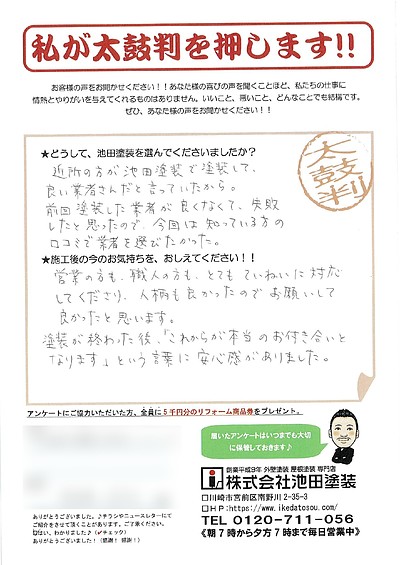 私が太鼓判を押します!!
お客様の声をお聞かせください!!あなた様の喜びの声を聞くことほど、私たちの仕事に
情熱とやりがいを与えてくれるものはありません。いいこと、悪いこと、どんなことでも結構です。
ぜひ、あなた様の声をお聞かせください!!
太鼓判
★どうして、池田塗装を選んでくださいましたか?
近所の方が池田塗装で塗装して、
良い業者さんだと言っていたから。
前回塗装した業者が良くなくて、失敗
したと思ったので、今回は知っている方の
口コミで業者を選びたかった。
★施工後の今のお気持ちを、おしえてください!!
営業の方も、職人の方も、とてもていねいに対応
してくださり、人柄も良かったのでお願いして
良かったと思います。
塗装が終わった後、「これからが本当のお付き合いと
なります」という言葉に安心感がありました。
アンケートにご協力いただいた方、全員に5千円分のリフォーム商品券をプレゼント。
届いたアンケートはいつまでも大切
に保管しておきます♪
創業平成9年 外壁塗装 屋根塗装 専門店
株式会社池田塗装
□川崎市宮前区南野川2-35-3
□HP:https://www.ikedatosou.com/
TEL 0120-711-056
《朝7時から夕方7時まで毎日営業中》
ありがとうございました。♪チラシやニュースレターにて
ご紹介をさせて頂くことがあります。ご了承ください。
はい、わかりました♪(✓チェック)
ありがとうございました!(感謝!感謝!)